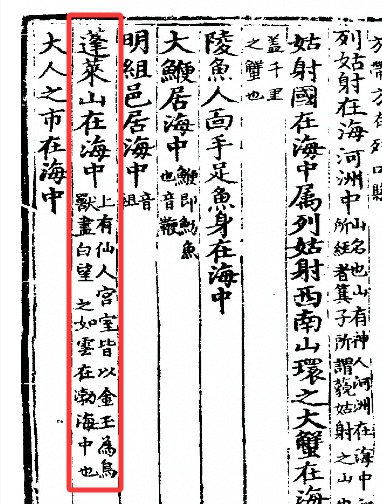 列姑射在海河洲中山名也山有神人河洲在海中
所經者箕子所謂藐姑射之山也
姑射國在海中属列姑射西南山環之大蟹在海
蓋千里
之蟹也
陵魚人面手足魚身在海中
大鯾居海中鯾即魴魚
也音鞭
明組邑居海中音
組
蓬萊山在海中上有仙人宮室皆以金玉為鳥
獸盡白望之如雲在渤海中也
大人之市在海中